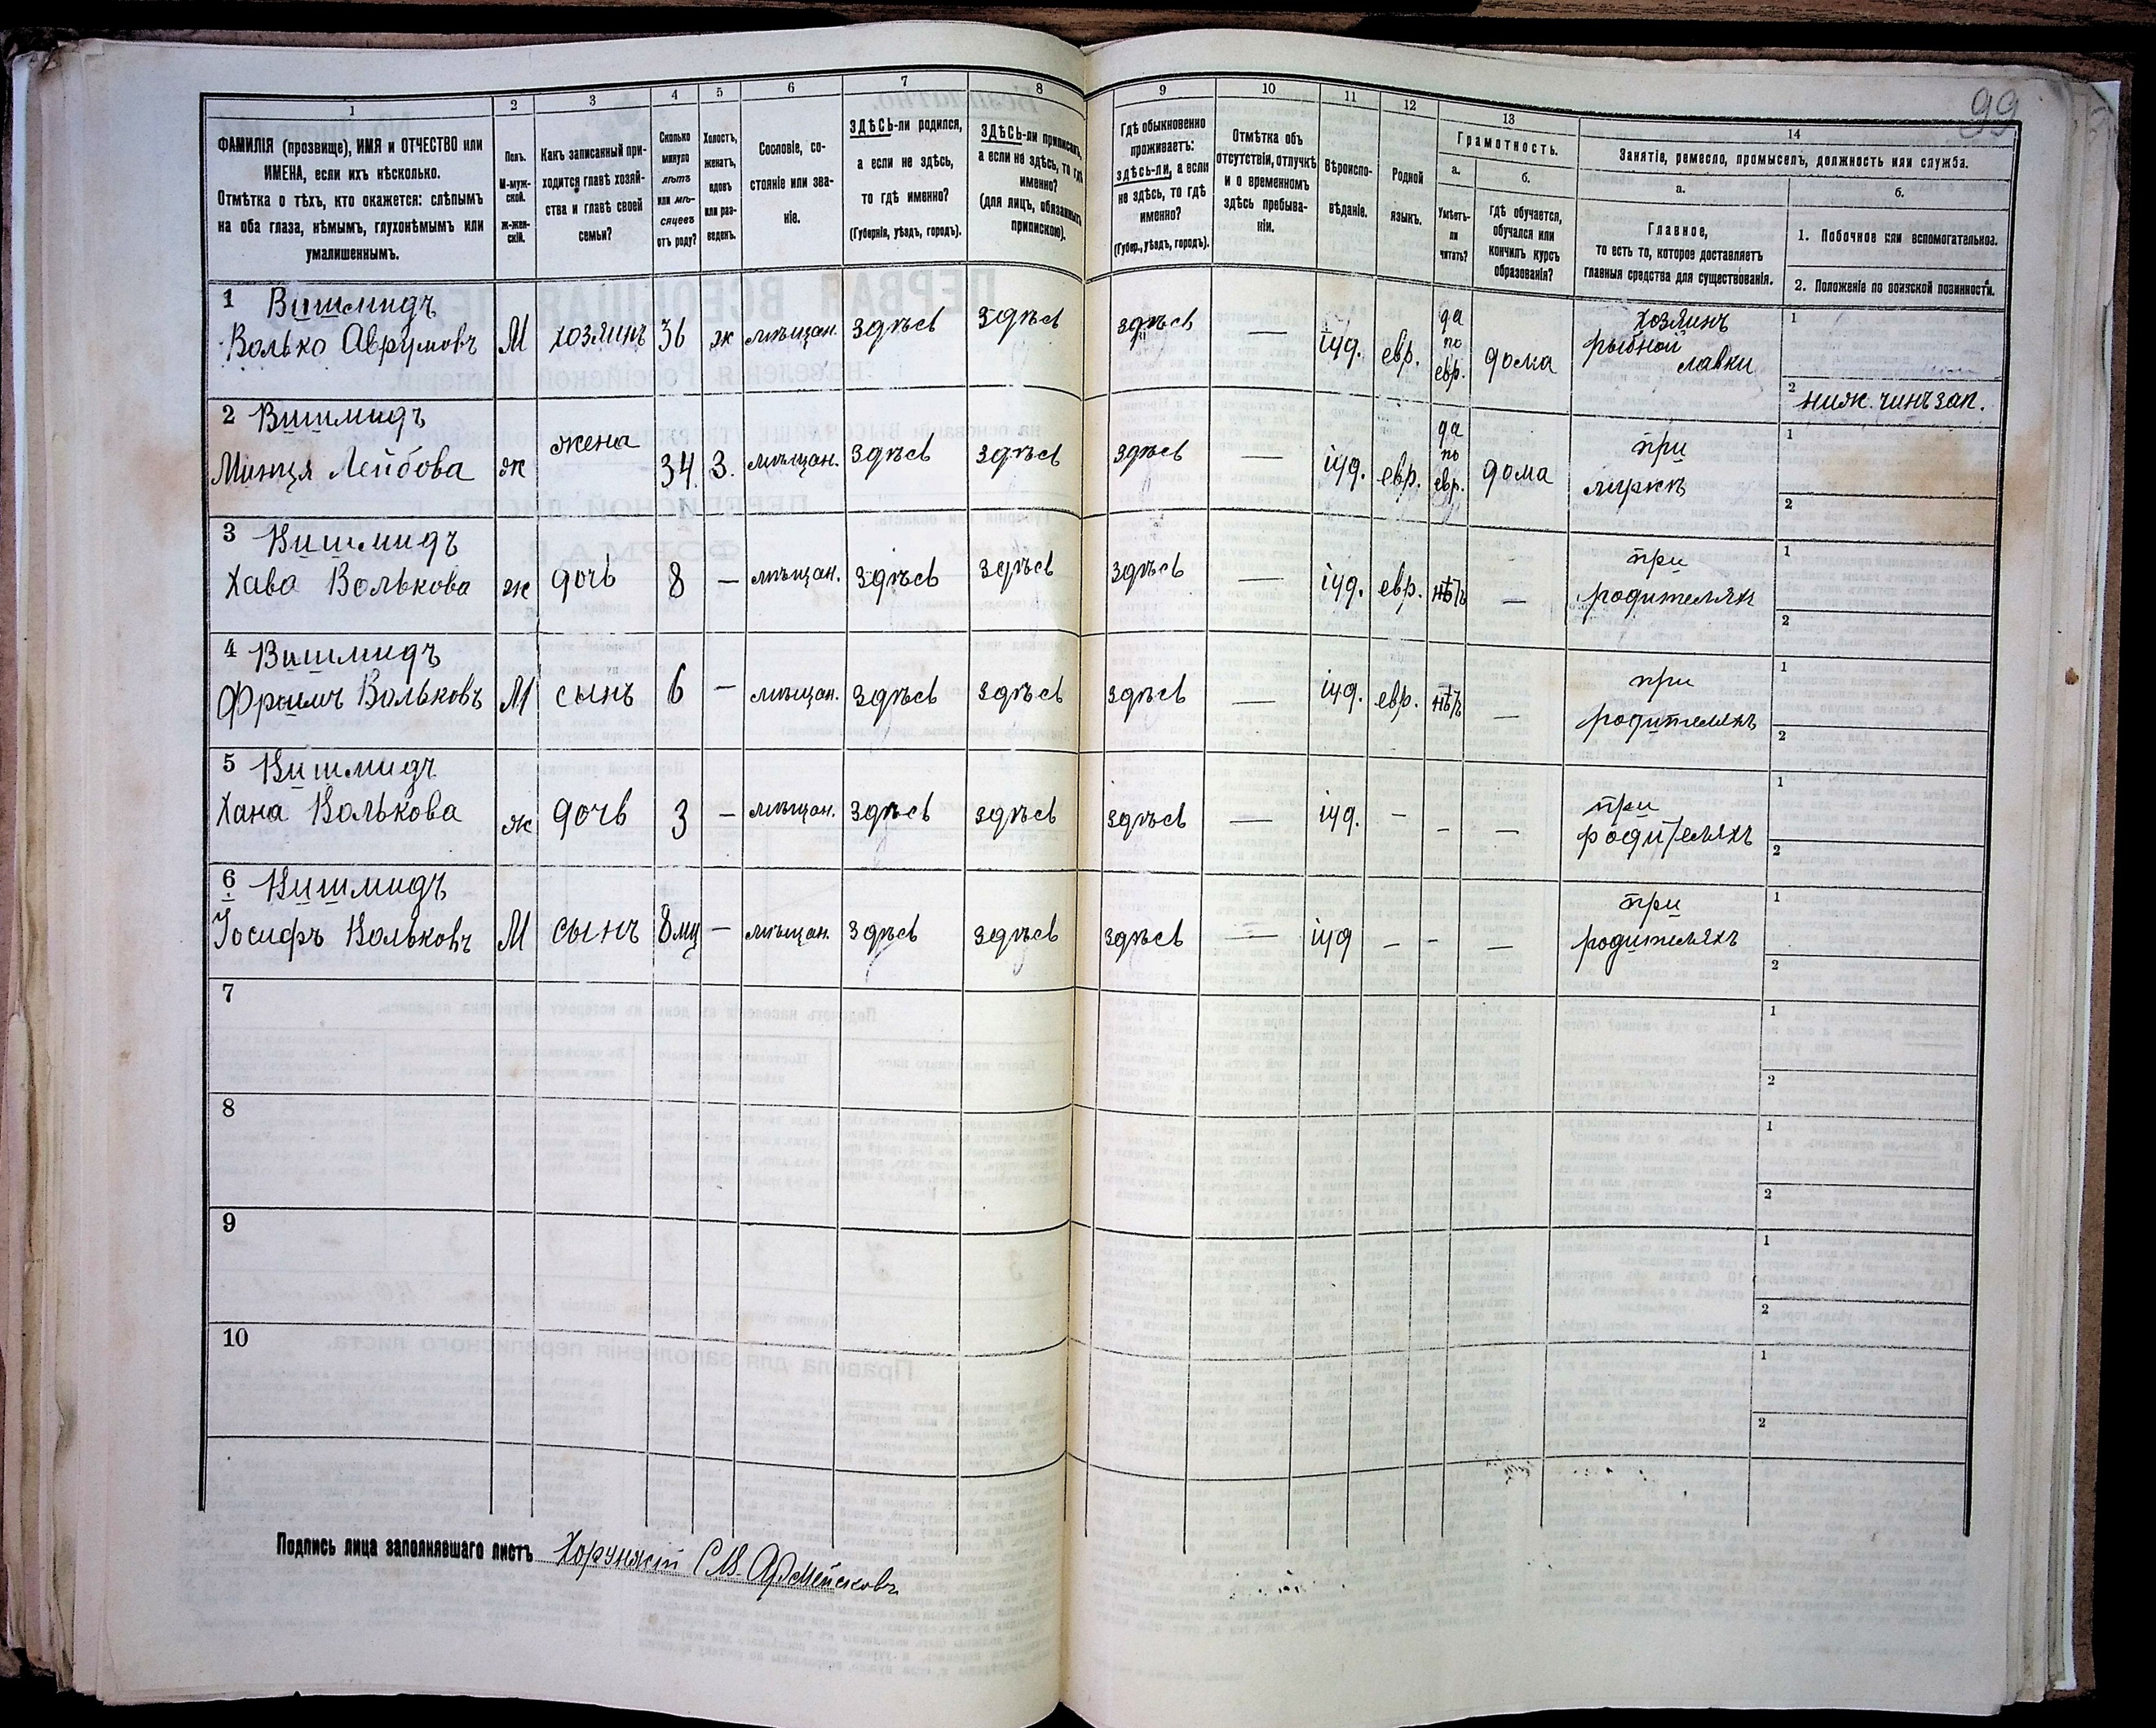 99
1 2 3 4 5 6 7 8 9 10 11 12 13 14
ФАМИЛІЯ (прозвище), ИМЯ и ОТЧЕСТВО или
ИМЕНА, если ихъ нѣсколько.
Отмѣтка о тѣхъ, кто окажется: слѣпымъ
на оба глаза, нѣмымъ, глухонѣмымъ или
умалишеннымъ.
Полъ.
М-муж-
ской.
Ж-жен-
скій.
Какъ записанный при-
ходится главѣ хозяй-
ства и главѣ своей
семьи?
Сколько
минуло
лѣтъ
или мѣ-
сяцевъ
отъ роду?
Холостъ,
женатъ,
вдовъ
или раз-
веденъ.
Сословіе, со-
стояніе или зва-
ніе.
ЗДѢСЬ-ли родился,
а если не здѣсь,
то гдѣ именно?
(Губернія, уѣздъ, городъ).
ЗДѢСЬ-ли приписанъ,
а если не здѣсь, то гдѣ
именно?
(для лицъ, обязанныхъ
припискою).
Гдѣ обыкновенно
проживаетъ:
здѣсь-ли, а если
не здѣсь, то гдѣ
именно?
(Губер., уѣздъ, городъ).
Отмѣтка объ
отсутствіи, отлучкѣ
и о временномъ
здѣсь пребыва-
ніи.
Вѣроиспо-
вѣданіе.
Родной
языкъ.
Грамотность.
а.
Умѣетъ-
ли
читать?
б.
гдѣ обучается,
обучался или
кончилъ курсъ
образованія?
Занятіе, ремесло, промыселъ, должность или служба.
а.
Главное,
то есть то, которое доставляетъ
главныя средства для существованія.
б.
1. Побочное или вспомогательное.
2. Положеніе по воинской повинности.
1 Вишмидъ
Волько Аврумовъ М хозяинъ 36 ж мѣщан. здѣсь здѣсь здѣсь — іуд. евр. да по евр. дома хозяинъ рыбной лавки 1
2 ниж. чинъ зап.
2 Вишмидъ
Минця Лейбова ж жена 34 З. мѣщан. здѣсь здѣсь здѣсь — іуд. евр. да по евр. дома при мужѣ 1
2
3 Вишмидъ
Хава Волькова ж дочь 8 — мѣщан. здѣсь здѣсь здѣсь — іуд. евр. нѣтъ — при родителях 1
2
4 Вишмидъ
Фроимъ Вольковъ М сынъ 6 — мѣщан. здѣсь здѣсь здѣсь — іуд. евр. нѣтъ — при родителяхъ 1
2
5 Вишмидъ
Хана Волькова ж дочь 3 — мѣщан. здѣсь здѣсь здѣсь — іуд. — — — при родителяхъ 1
2
6 Вишмидъ
Іосифъ Вольковъ М сынъ 8 мц — мѣщан. здѣсь здѣсь здѣсь — іуд — — — при родителяхъ 1
2
7 1
2
8 1
2
9 1
2
10 1
2
Подпись лица заполнявшаго листъ Хорунжій